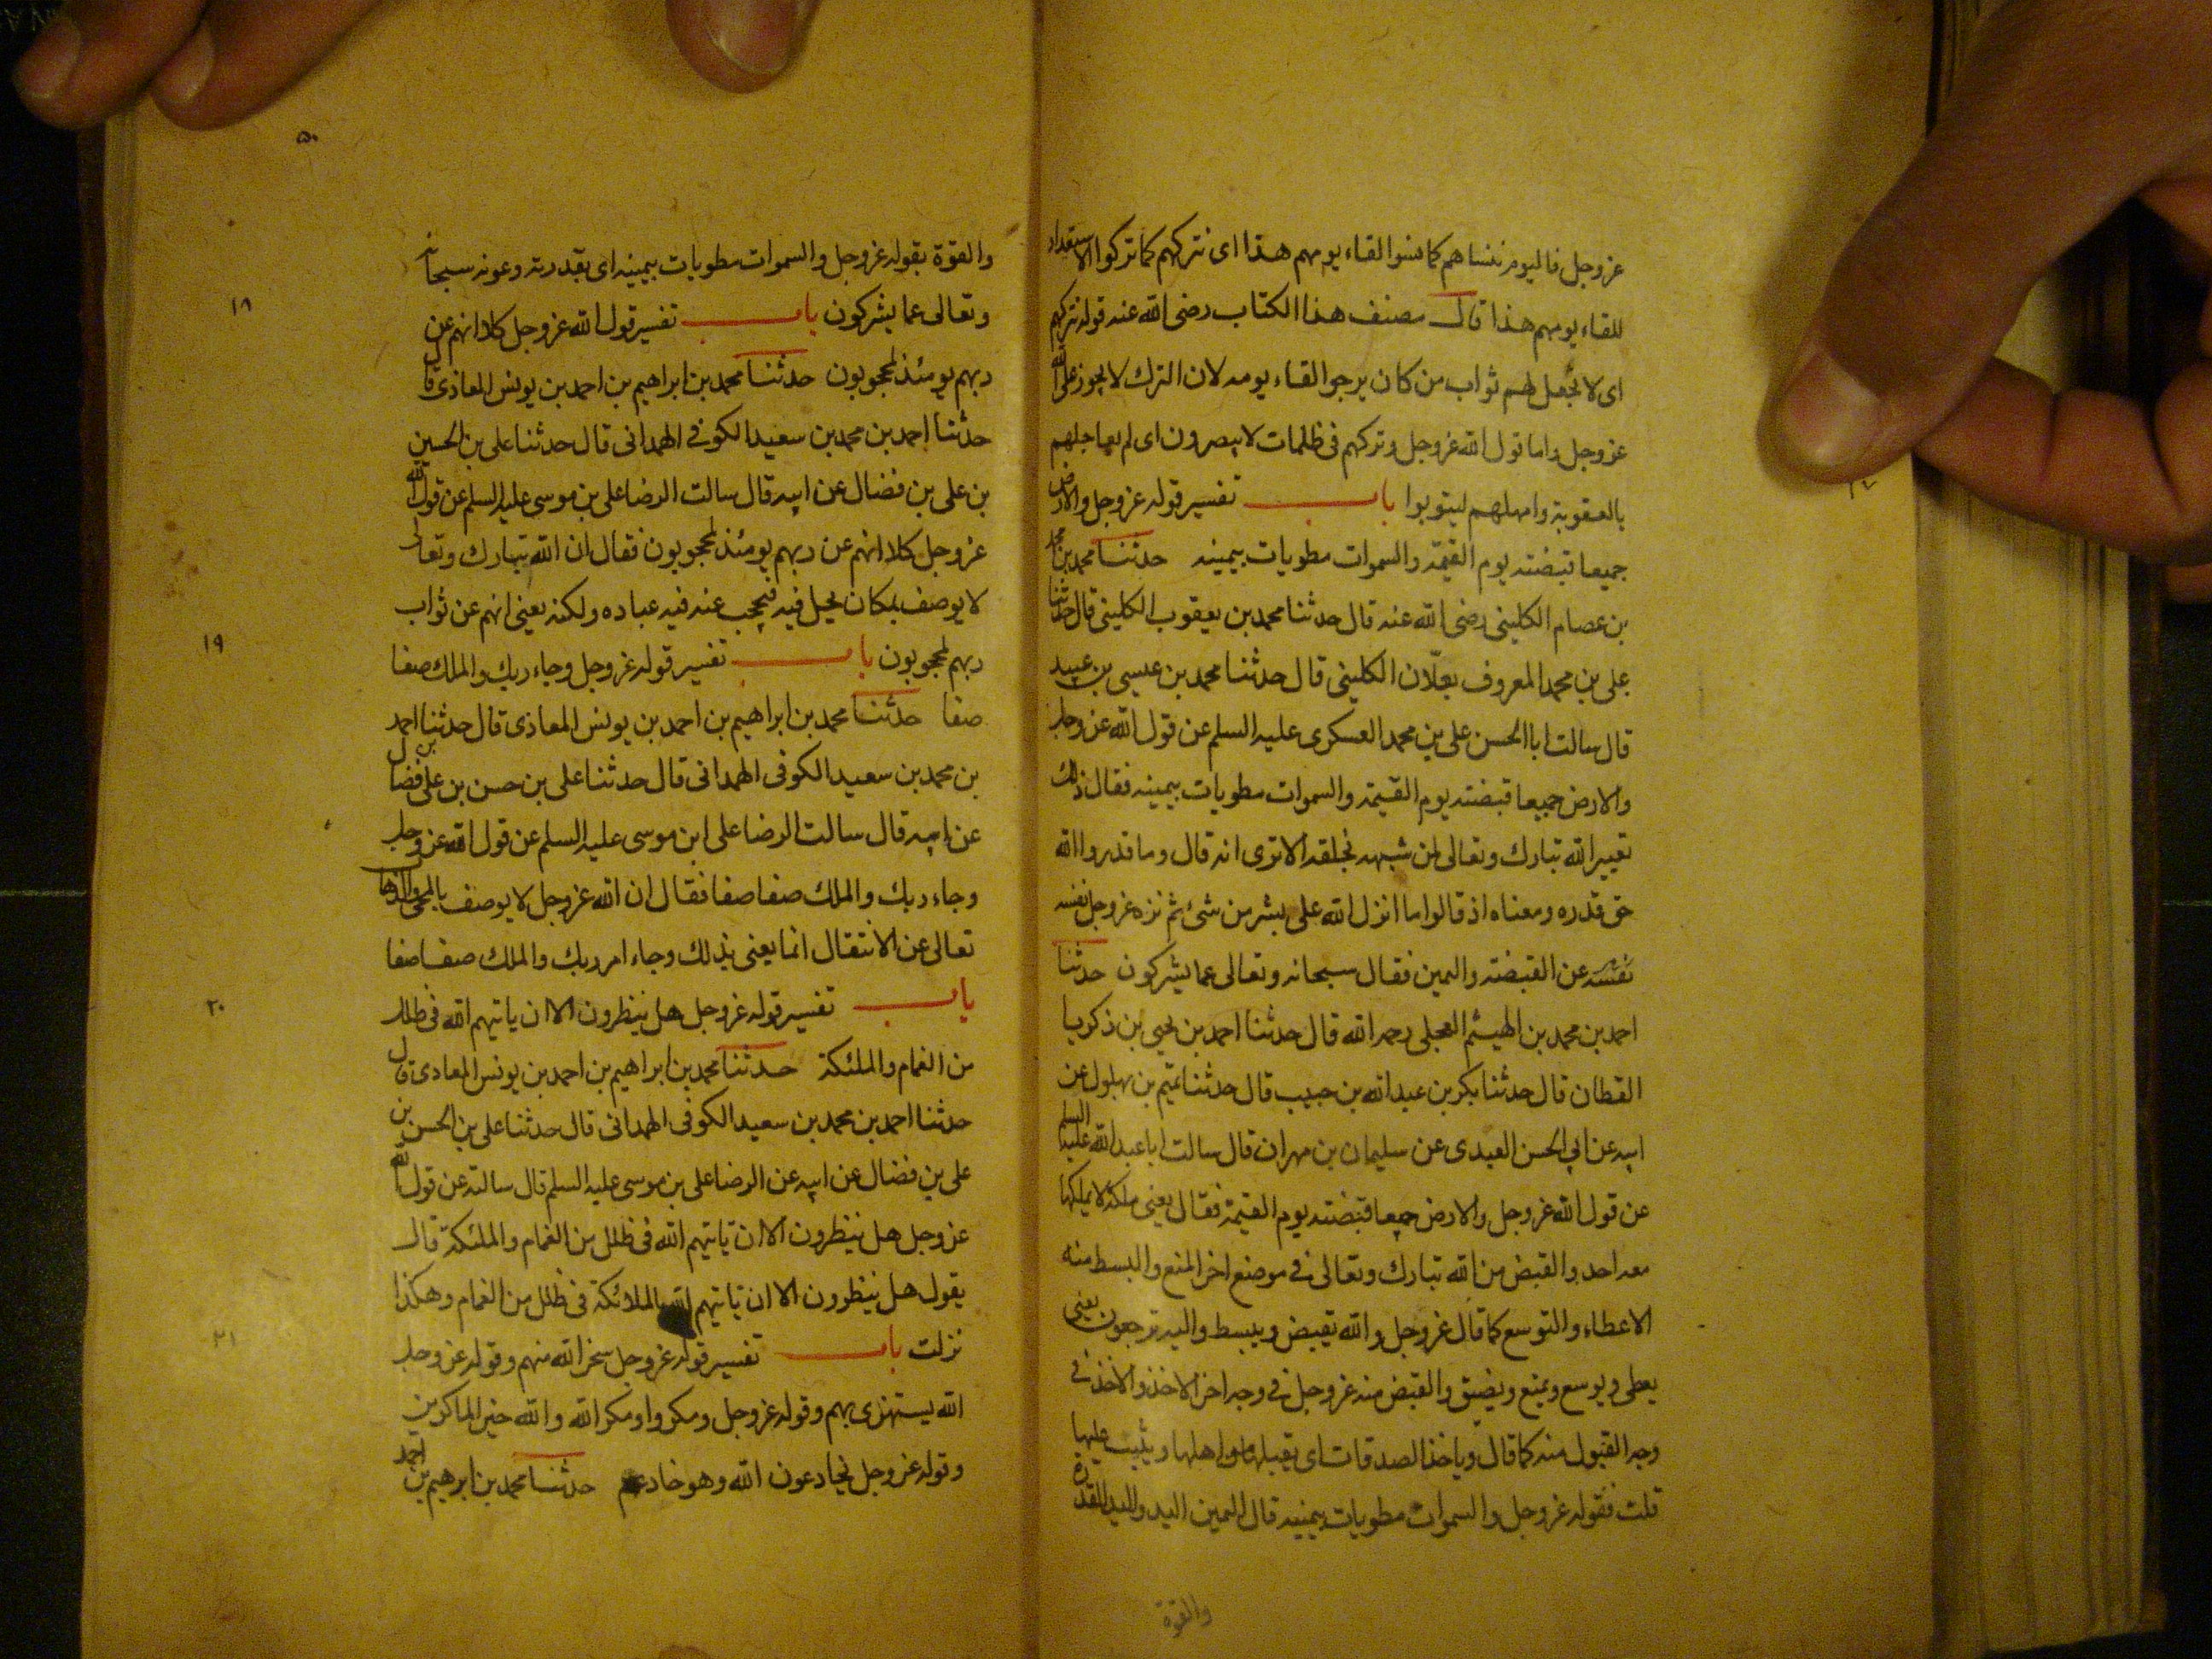 عزوجل فاليوم ننساهم كما نسوا لقاء يومهم هذا اى نتركهم كما تركوا الاستعداد
للقاء يومهم هذا قال مصنف هذا الكتاب رضى الله عنه قوله نتركهم
اى لا نجعل لهم ثواب من كان يرجو القاء يومه لان الترك لا يجوز على الله
عزوجل واما قول الله عزوجل وتركهم فى ظلمات لا يبصرون اى لم يعاجلهم
بالعقوبة وامهلهم ليتوبوا باب تفسير قوله عزوجل والارض
جميعا قبضته يوم القيمة والسموات مطويات بيمينه حدثنا محمد بن محمد
بن عصام الكلينى رضى الله عنه قال حدثنا محمد بن يعقوب الكلينى قال حدثنا
على بن محمد المعروف بعلّان الكلينى قال حدثنا محمد بن عيسى بن عبيد
قال سالت ابا الحسن على بن محمد العسكرى عليه السلم عن قول الله عزوجل
والارض جميعا قبضته يوم القيمة والسموات مطويات بيمينه فقال ذلك
تعيير الله تبارك وتعالى لمن شبهه بخلقه الا ترى انه قال وما قدروا الله
حق قدره ومعناه اذ قالوا ما انزل الله على بشر من شئ ثم نزه عزوجل نفسه
نفسه عن القبضة واليمين فقال سبحانه وتعالى عما يشركون حدثنا
احمد بن محمد بن الهيثم العجلى رحمه الله قال حدثنا احمد بن يحيى بن زكريا
القطان قال حدثنا بكر بن عبد الله بن حبيب قال حدثنا تميم بن بهلول عن
ابيه عن ابى الحسن العبدى عن سليمان بن مهران قال سالت ابا عبد الله عليه السلم
عن قول الله عزوجل والارض جميعا قبضته يوم القيمة فقال يعنى ملكه لا يملكها
معه احد والقبض من الله تبارك وتعالى فى موضع اخر المنع والبسط منه
الاعطاء والتوسع كما قال عزوجل والله يقبض ويبسط واليه ترجعون يعنى
يعطى ويوسع ويمنع ويضيق والقبض منه عزوجل فى وجه اخر الاخذ والاخذ فى
وجه القبول منه كما قال وياخذ الصدقات اى يقبلها من اهلها ويثيب عليها
قلت فقوله عزوجل والسموات مطويات بيمينه قال اليمين اليد واليد القدرة
والقوة
٥٠
والقوة بقوله عزوجل والسموات مطويات بيمينه اى بقدرته وعونه سبحانه
١٨
وتعالى عما يشركون باب تفسير قول الله عزوجل كلا انهم عن
ربهم يومئذ لمحجوبون حدثنا محمد بن ابراهيم بن احمد بن يونس المعاذى قال
حدثنا احمد بن محمد بن سعيد الكوفى الهمدانى قال حدثنا على بن الحسين
بن على بن فضال عن ابيه قال سالت الرضا على بن موسى عليه السلم عن قول الله
عزوجل كلا انهم عن ربهم يومئذ لمحجوبون فقال ان الله تبارك وتعالى
لا يوصف بمكان يحل فيه فيحجب عنه فيه عباده ولكنه يعنى انهم عن ثواب
١٩
ربهم لمحجوبون باب تفسير قوله عزوجل وجاء ربك والملك صفا
صفا حدثنا محمد بن ابراهيم بن احمد بن يونس المعاذى قال حدثنا احمد
بن محمد بن سعيد الكوفى الهمدانى قال حدثنا على بن حسن بن على بن فضال
عن ابيه قال سالت الرضا على ابن موسى عليه السلم عن قول الله عزوجل
وجاء ربك والملك صفا صفا فقال ان الله عزوجل لا يوصف بالمجى والذهاب
تعالى عن الانتقال انما يعنى بذلك وجاء امر ربك والملك صفا صفا
٢٠
باب تفسير قوله عزوجل هل ينظرون الا ان ياتيهم الله فى ظلل
من الغمام والملئكة حدثنا محمد بن ابراهيم بن احمد بن يونس المعاذى قال
حدثنا احمد بن محمد بن سعيد الكوفى الهمدانى قال حدثنا على بن الحسن بن
على بن فضال عن ابيه عن الرضا على بن موسى عليه السلم قال سالته عن قول الله
عزوجل هل ينظرون الا ان ياتيهم الله فى ظلل من الغمام والملئكة قال
يقول هل ينظرون الا ان ياتيهم الله بالملائكة فى ظلل من الغمام وهكذا
٢١
نزلت باب تفسير قوله عزوجل سخر الله منهم وقوله عزوجل
الله يستهزى بهم وقوله عزوجل ومكروا ومكر الله والله خير الماكرين
وقوله عزوجل يخادعون الله وهو خادعهم حدثنا محمد بن ابرهيم بن احمد